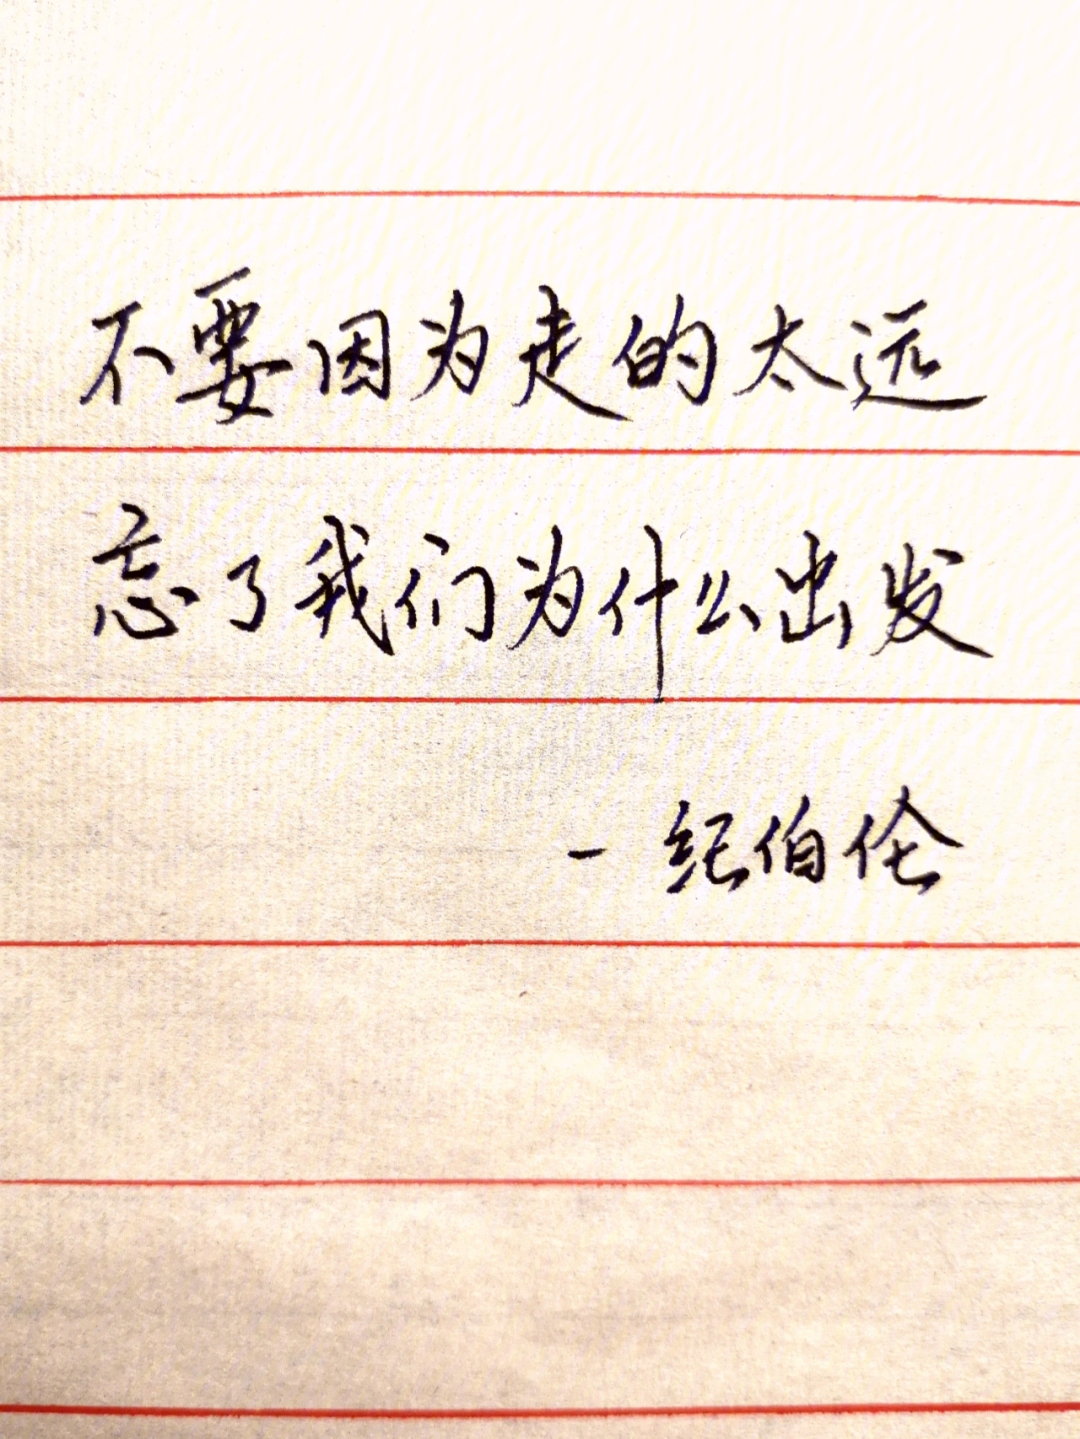 不要因为走的太远
忘了我们为什么出发
- 纪伯伦